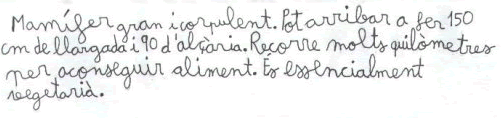 Mamífer gran i corpulent. Pot arribar a fer 150
cm de llargada i 90 d'alçària. Recorre molts quilòmetres
per aconseguir aliment. És essencialment
vegetarià.